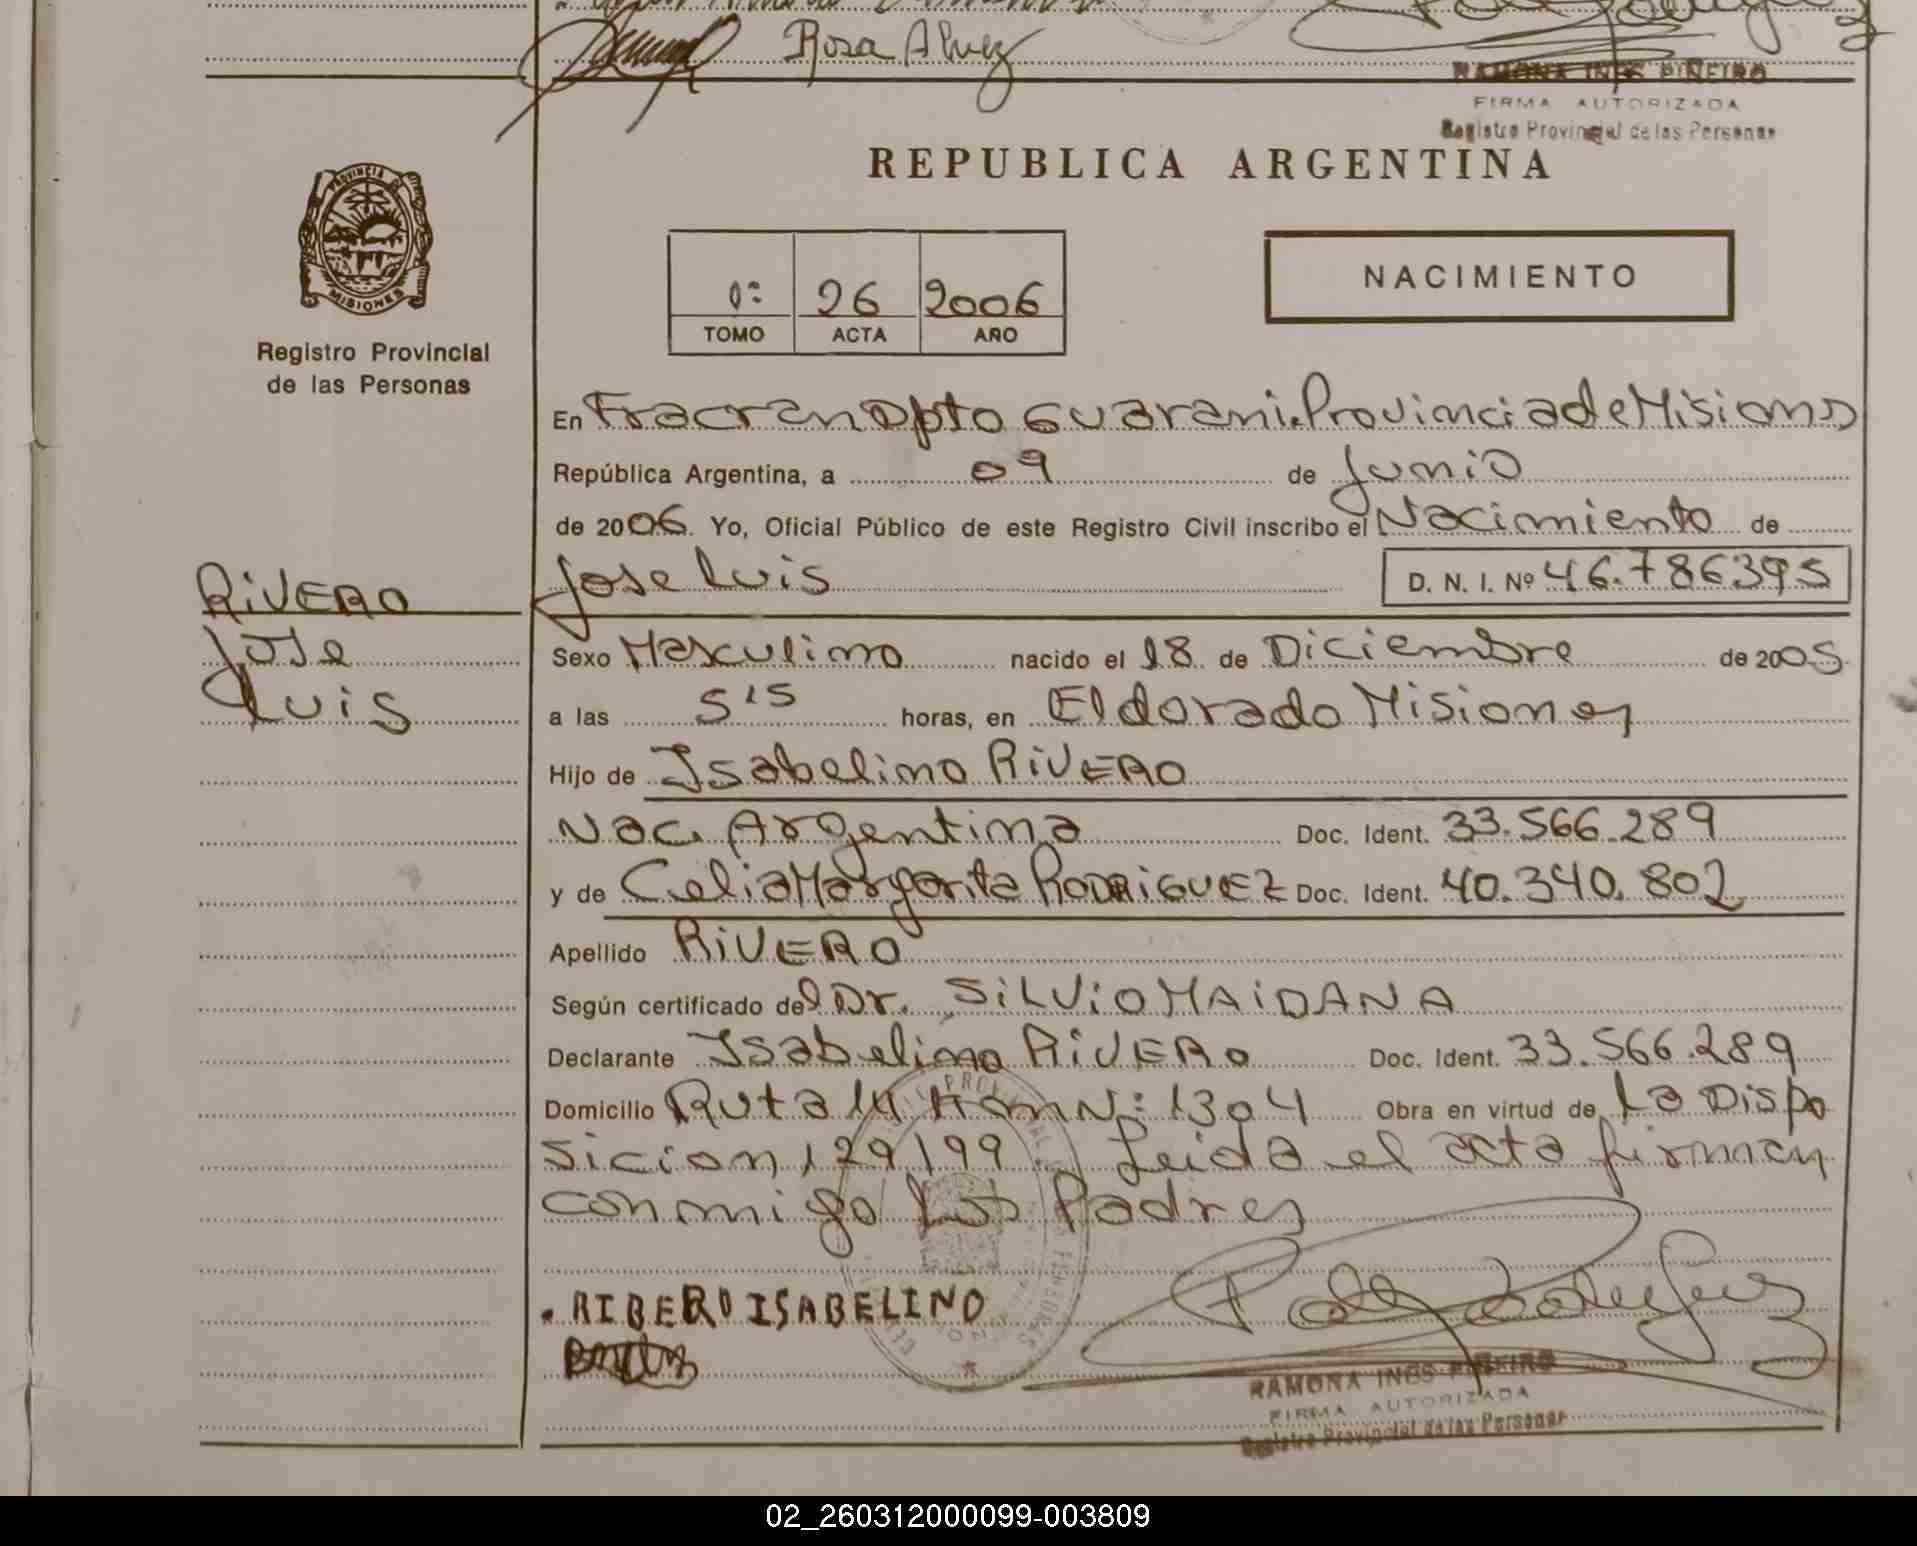 Rosa Alvez
RAMONA INES PIÑEIRO
FIRMA AUTORIZADA
Registro Provincial de las Personas
REPUBLICA ARGENTINA
PROVINCIA DE
MISIONES
Registro Provincial
de las Personas
1º 26 2006
TOMO ACTA AÑO
NACIMIENTO
En Fracran Dpto Guarani. Provincia de Misiones
República Argentina, a 09 de Junio
de 2006. Yo, Oficial Público de este Registro Civil inscribo el Nacimiento de
RIVERO
Jose Luis D. N. I. Nº 46.786395
Jose
Luis
Sexo Masculino nacido el 18 de Diciembre de 2005
a las 5'15 horas, en Eldorado Misiones
Hijo de Isabelino RIVERO
Nac. Argentina Doc. Ident. 33.566.289
y de Celia Margarita RODRIGUEZ Doc. Ident. 40.340.802
Apellido RIVERO
Según certificado del Dr. SILVIO MAIDANA
Declarante Isabelino RIVERO Doc. Ident. 33.566.289
Domicilio Ruta 14 Km Nº: 1304 Obra en virtud de La Dispo
sicion 129/99 Leida el acta firman
conmigo los Padres
RIBERO ISABELINO
RAMONA INES PIÑEIRO
FIRMA AUTORIZADA
Registro Provincial de las Personas
02_260312000099-003809